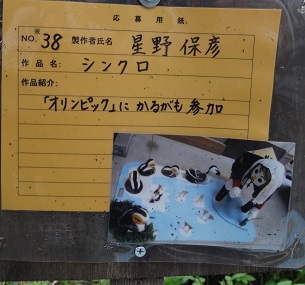 応募用紙
NO.※38 製作者氏名 星野保彦
作品名: シンクロ
作品紹介:
「オリンピック」に かるがも 参加